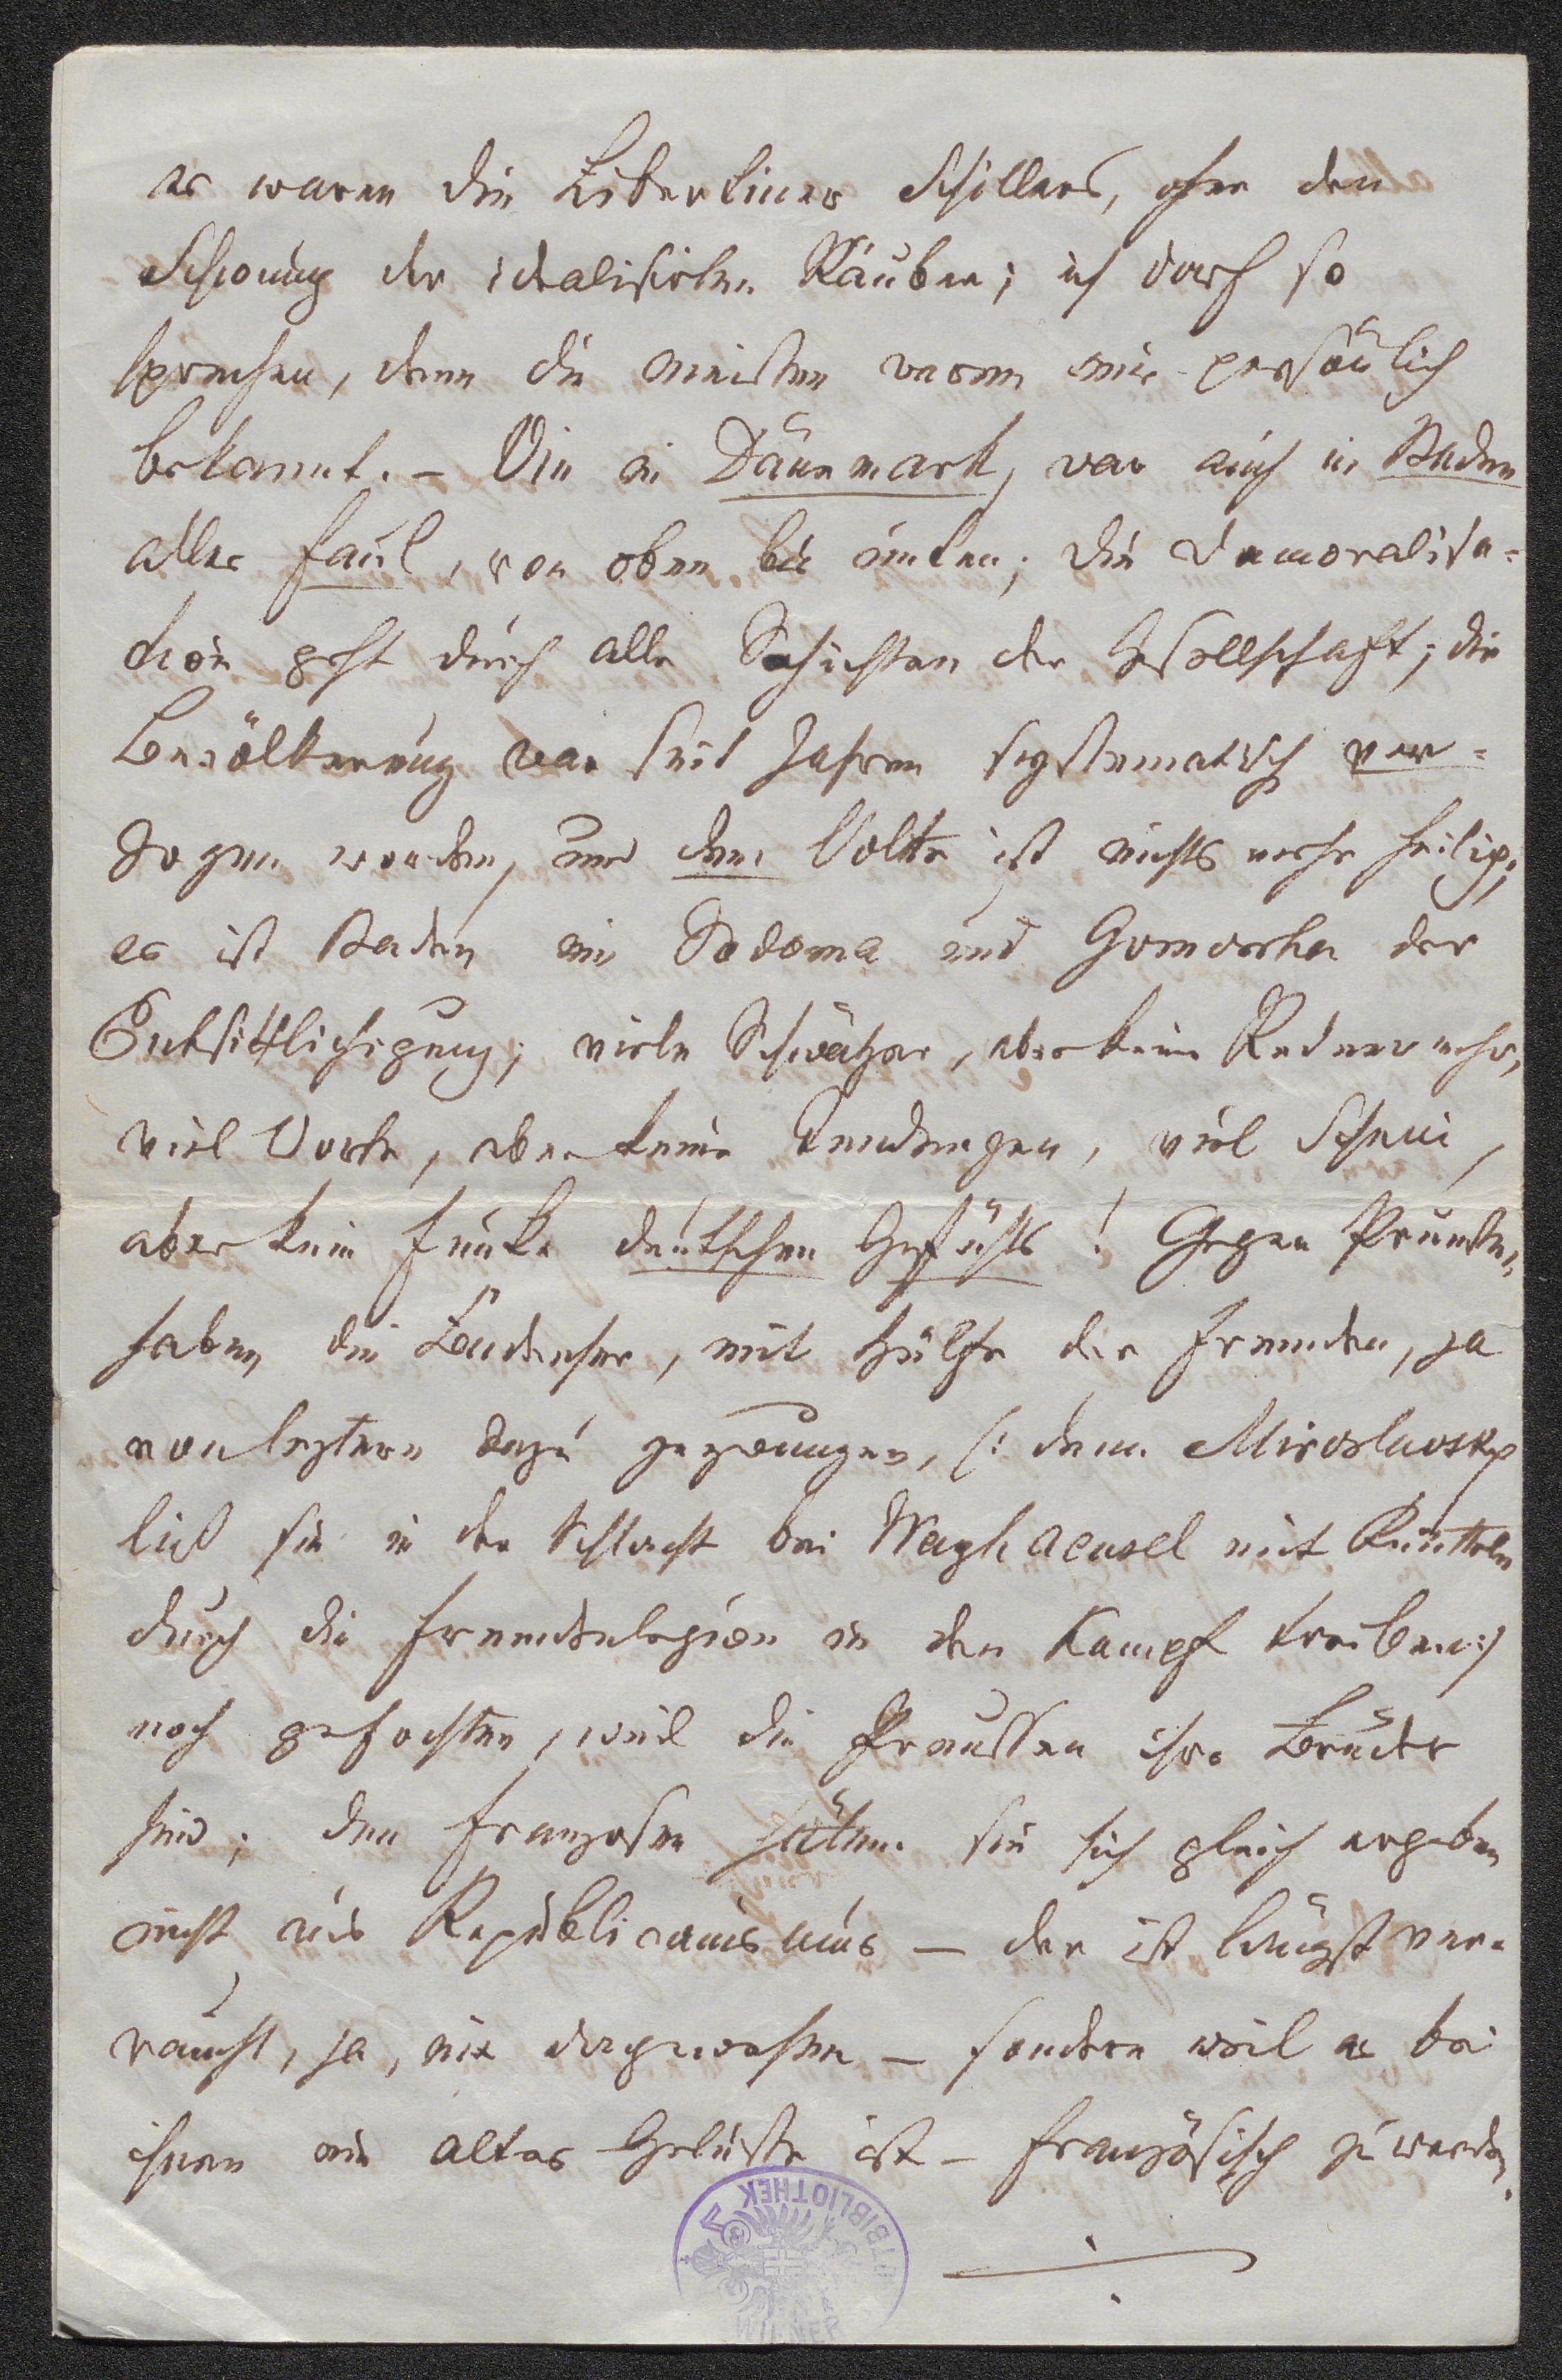 es waren die Libertiner Schillers, ohne den
Schwung der idealisirten Räuber; ich darf so
sprechen, denn die meisten waren mir persönlich
bekannt. – Wie in Dänemark, war auch in Baden
alles faul, von oben bis unten; die Demoralisa-
tion geht durch alle Schichten der Gesellschaft; die
Bevölkerung war seit Jahren systematisch ver-
zogen worden, und dem Volke ist nichts mehr heilig;
es ist Baden ein Sodoma und Gomorha der
Entsittlichigung; viele Schwätzer, aber keine Redner mehr,
viel Worte, aber keine Tendenzen, viel Schein,
aber kein Funke deutschen Gefühls! Gegen Preußen
haben die Badenser, mit Hülfe der Fremden, ja
von letztern dazu gezwungen, (: denn Miroslavsky
ließ sie in der Schlacht bei Waghaeusel mit Knütteln
durch die Fremdenlegion in den Kampf treiben :)
noch gefochten, weil die Preussen ihre Brüder
sind; den Franzosen hätten sie sich gleich ergeben
nicht aus Republicanismus – der ist längst ver-
raucht, ja, nie dagewesen – sondern weil es bei
ihnen ein altes Gelüste ist – französisch zu werden.
WIENER STADTBIBLIOTHEK